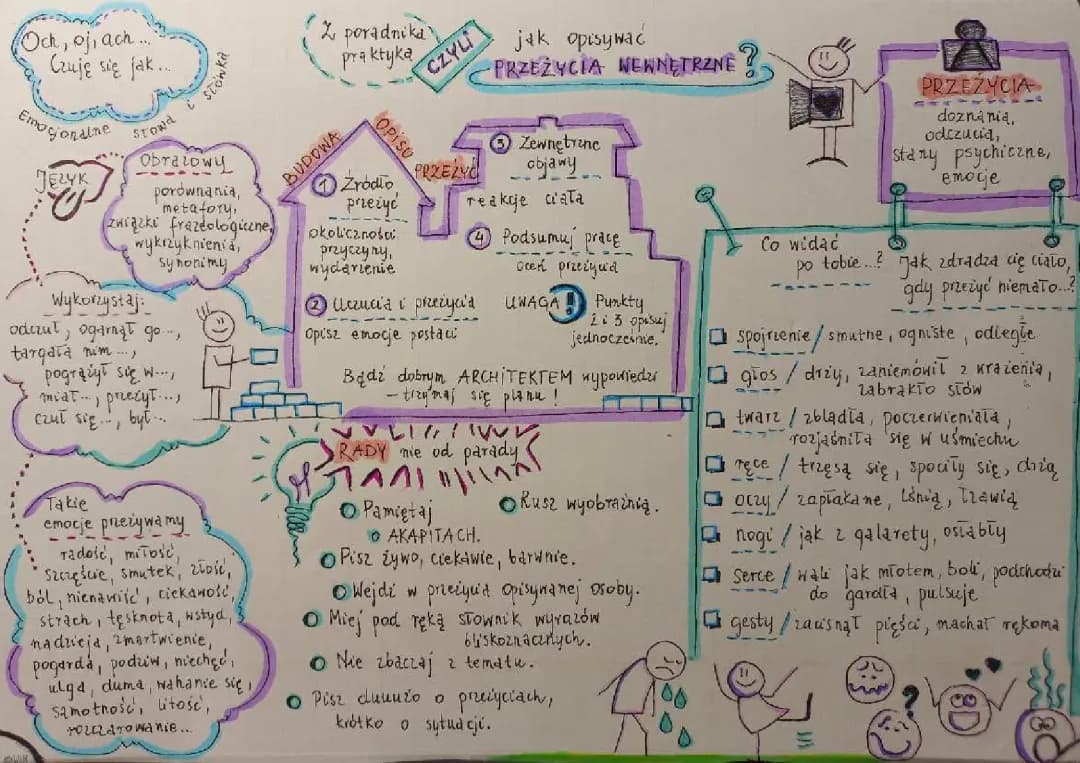 Och, oj, ach...
Czuję się jak...
Emocjonalne słowa i słówka
Z poradnika
praktyka
CZYLI
jak opisywać
PRZEŻYCIA WEWNĘTRZNE?
PRZEŻYCIA
doznania,
odczucia,
stany psychiczne,
emocje
JĘZYK
Obrazowy
porównania,
metafory,
związki frazeologiczne,
wykrzyknienia,
synonimy
Wykorzystaj:
odczuł, ogarnął go...,
targała nim...,
pogrążył się w...,
miał..., przeżył...,
czuł się..., był...
Takie
emocje przeżywamy
radość, miłość,
szczęście, smutek, złość,
ból, nienawiść, ciekawość,
strach, tęsknota, wstyd,
nadzieja, zmartwienie,
pogarda, podziw, niechęć,
ulga, duma, wahanie się,
samotność, litość,
rozczarowanie...
BUDOWA OPISU PRZEŻYĆ
1 Źródło
przeżyć
okoliczności
przyczyny,
wydarzenie
2 Uczucia i przeżycia
opisz emocje postaci
3 Zewnętrzne
objawy
reakcje ciała
4 Podsumuj pracę
oceń przeżycia
UWAGA! Punkty
2 i 3 opisuj
jednocześnie.
Bądź dobrym ARCHITEKTEM wypowiedzi
– trzymaj się planu!
RADY nie od parady
Pamiętaj
o AKAPITACH.
Rusz wyobraźnią.
Pisz żywo, ciekawie, barwnie.
Wejdź w przeżycia opisywanej osoby.
Miej pod ręką słownik wyrazów
bliskoznacznych.
Nie zbaczaj z tematu.
Pisz duuużo o przeżyciach,
krótko o sytuacji.
Co widać
po tobie...?
Jak zdradza cię ciało,
gdy przeżyć niemało...?
spojrzenie / smutne, ogniste, odległe
głos / drży, zaniemówił z wrażenia,
zabrakło słów
twarz / zbladła, poczerwieniała,
rozjaśniła się w uśmiechu
ręce / trzęsą się, spociły się, drżą
oczy / zapłakane, lśnią, łzawią
nogi / jak z galarety, osłabły
serce / wali jak młotem, boli, podchodzi
do gardła, pulsuje
gesty / zacisnął pięści, machał rękoma
?